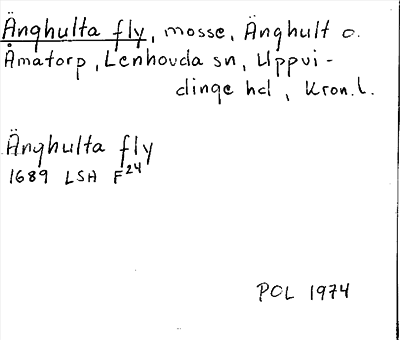 Änghulta fly, mosse, Änghult o.
Åmatorp, Lenhovda sn, Uppvi-
dinge hd, Kron.l.
Änghulta fly
1689 LSA F24
POL 1974